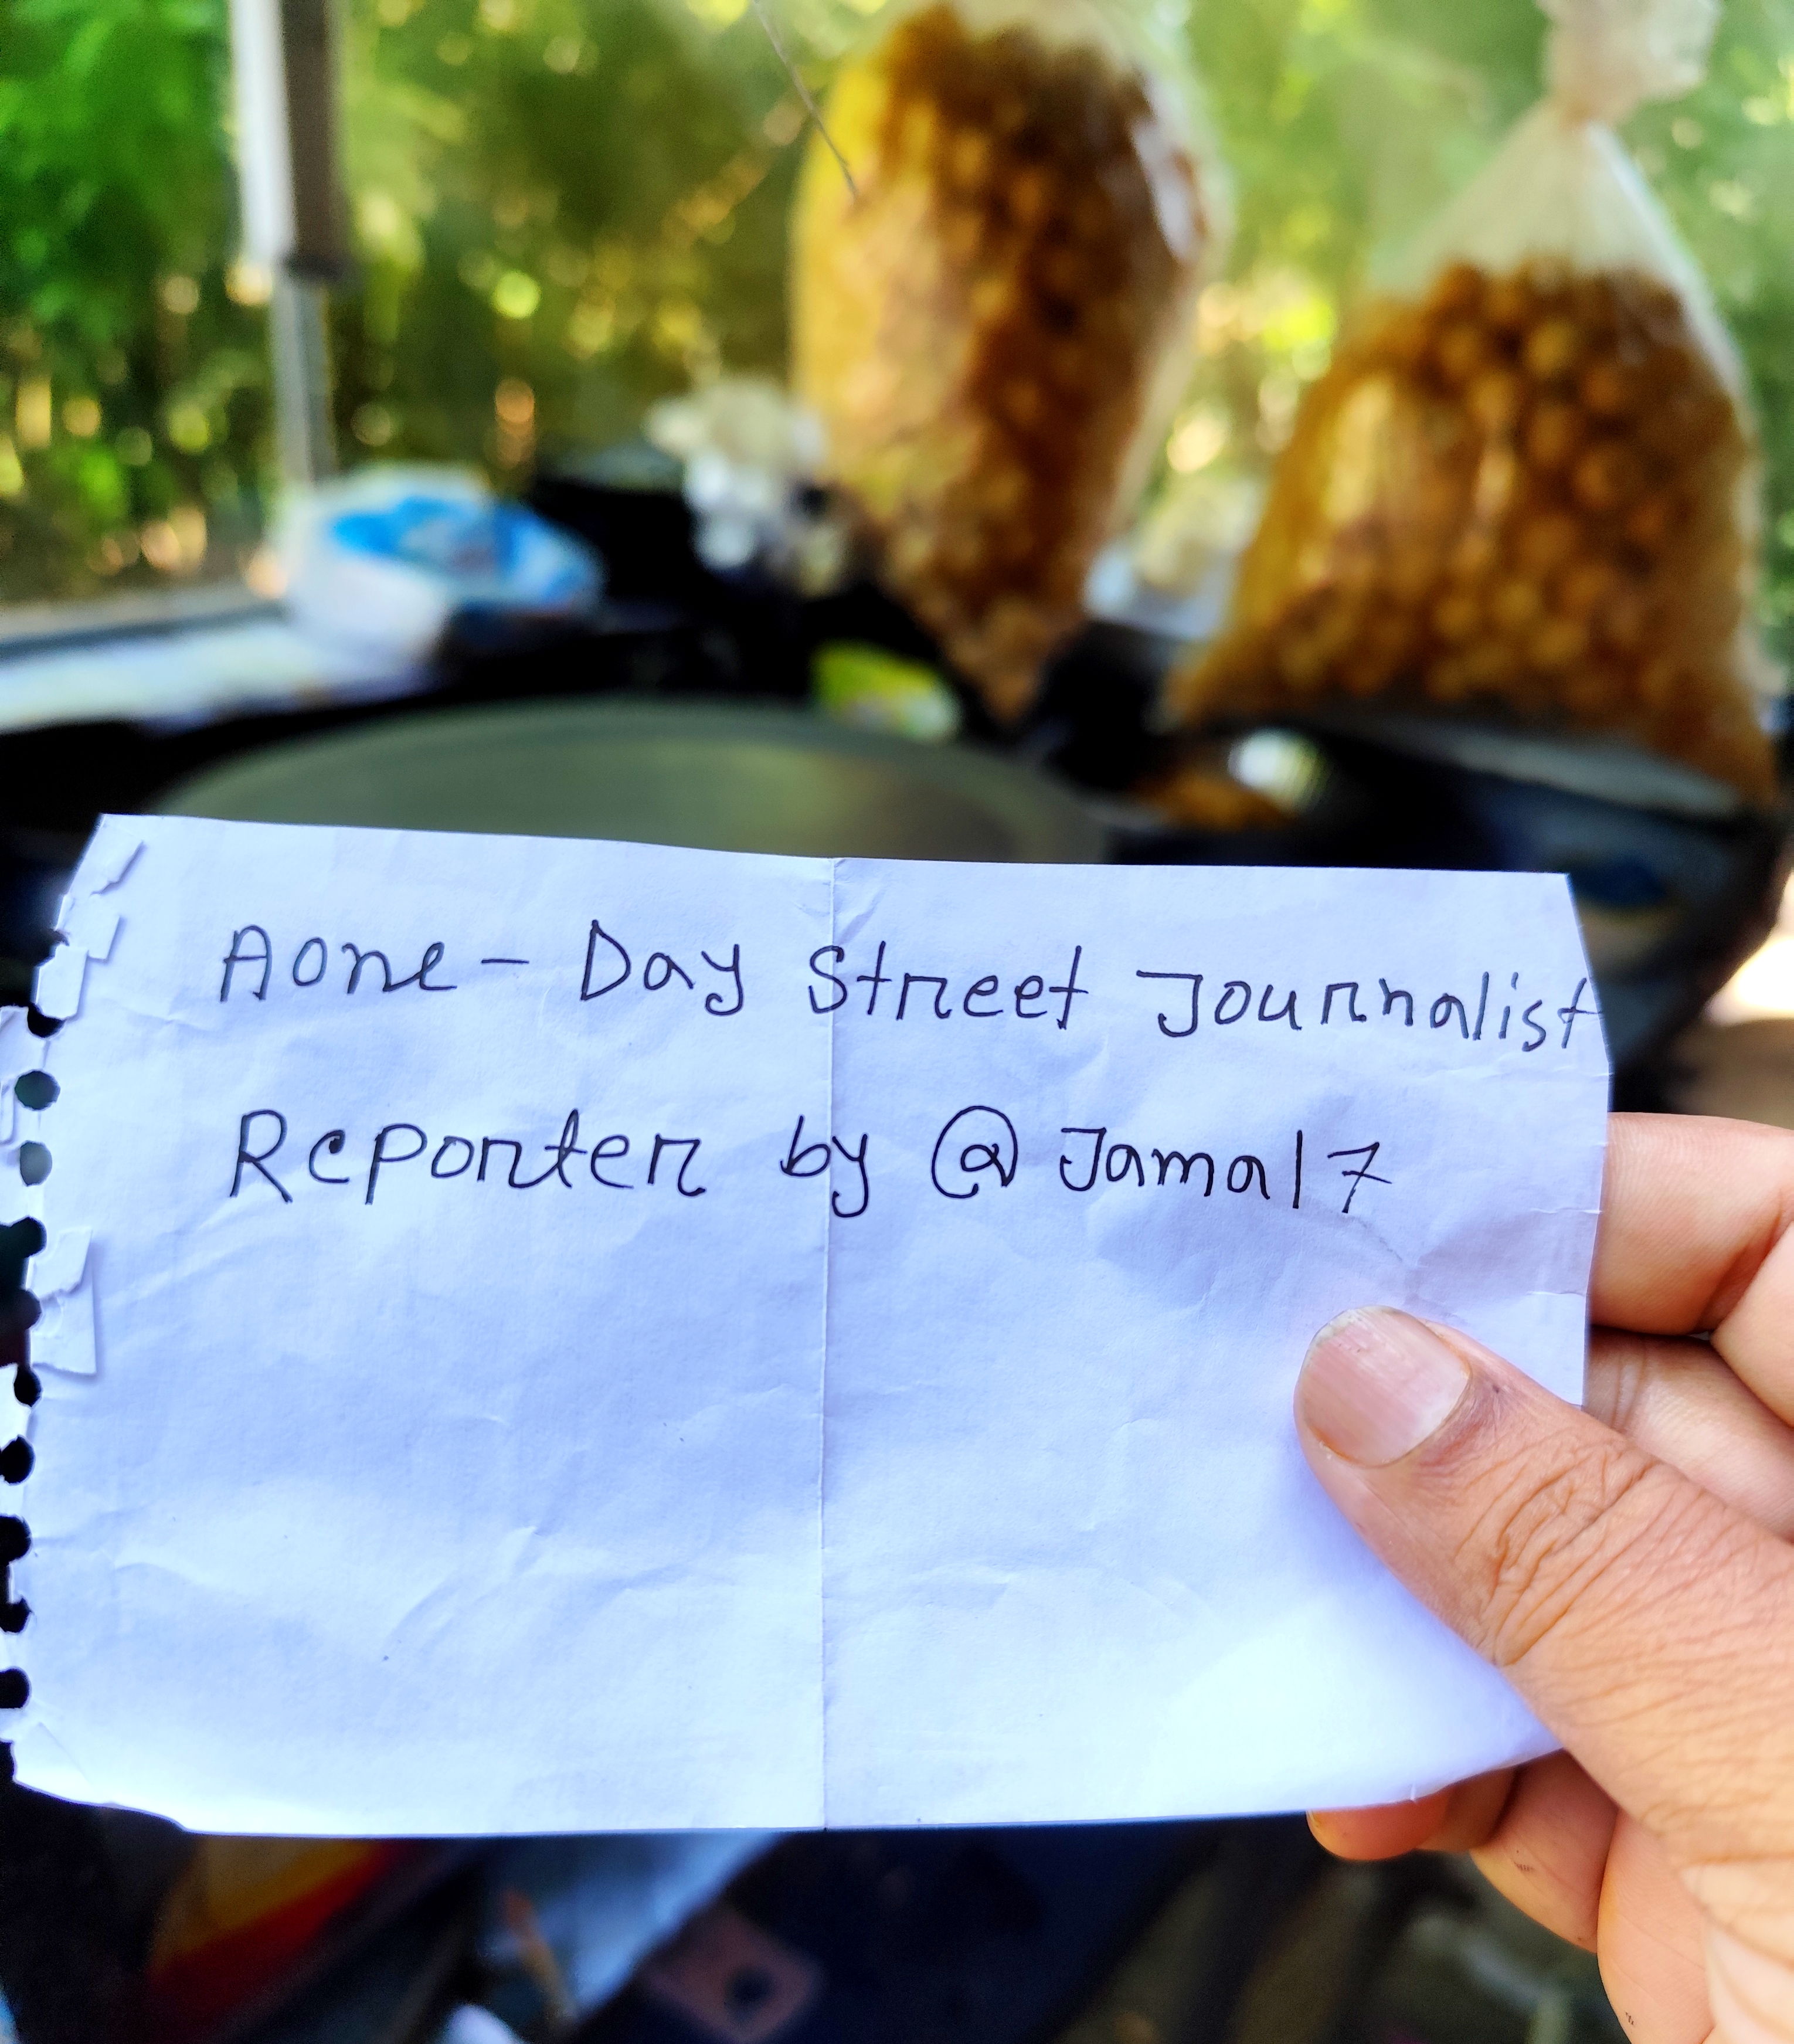 Aone - Day Street Journalist
Reporter by @Jamal7